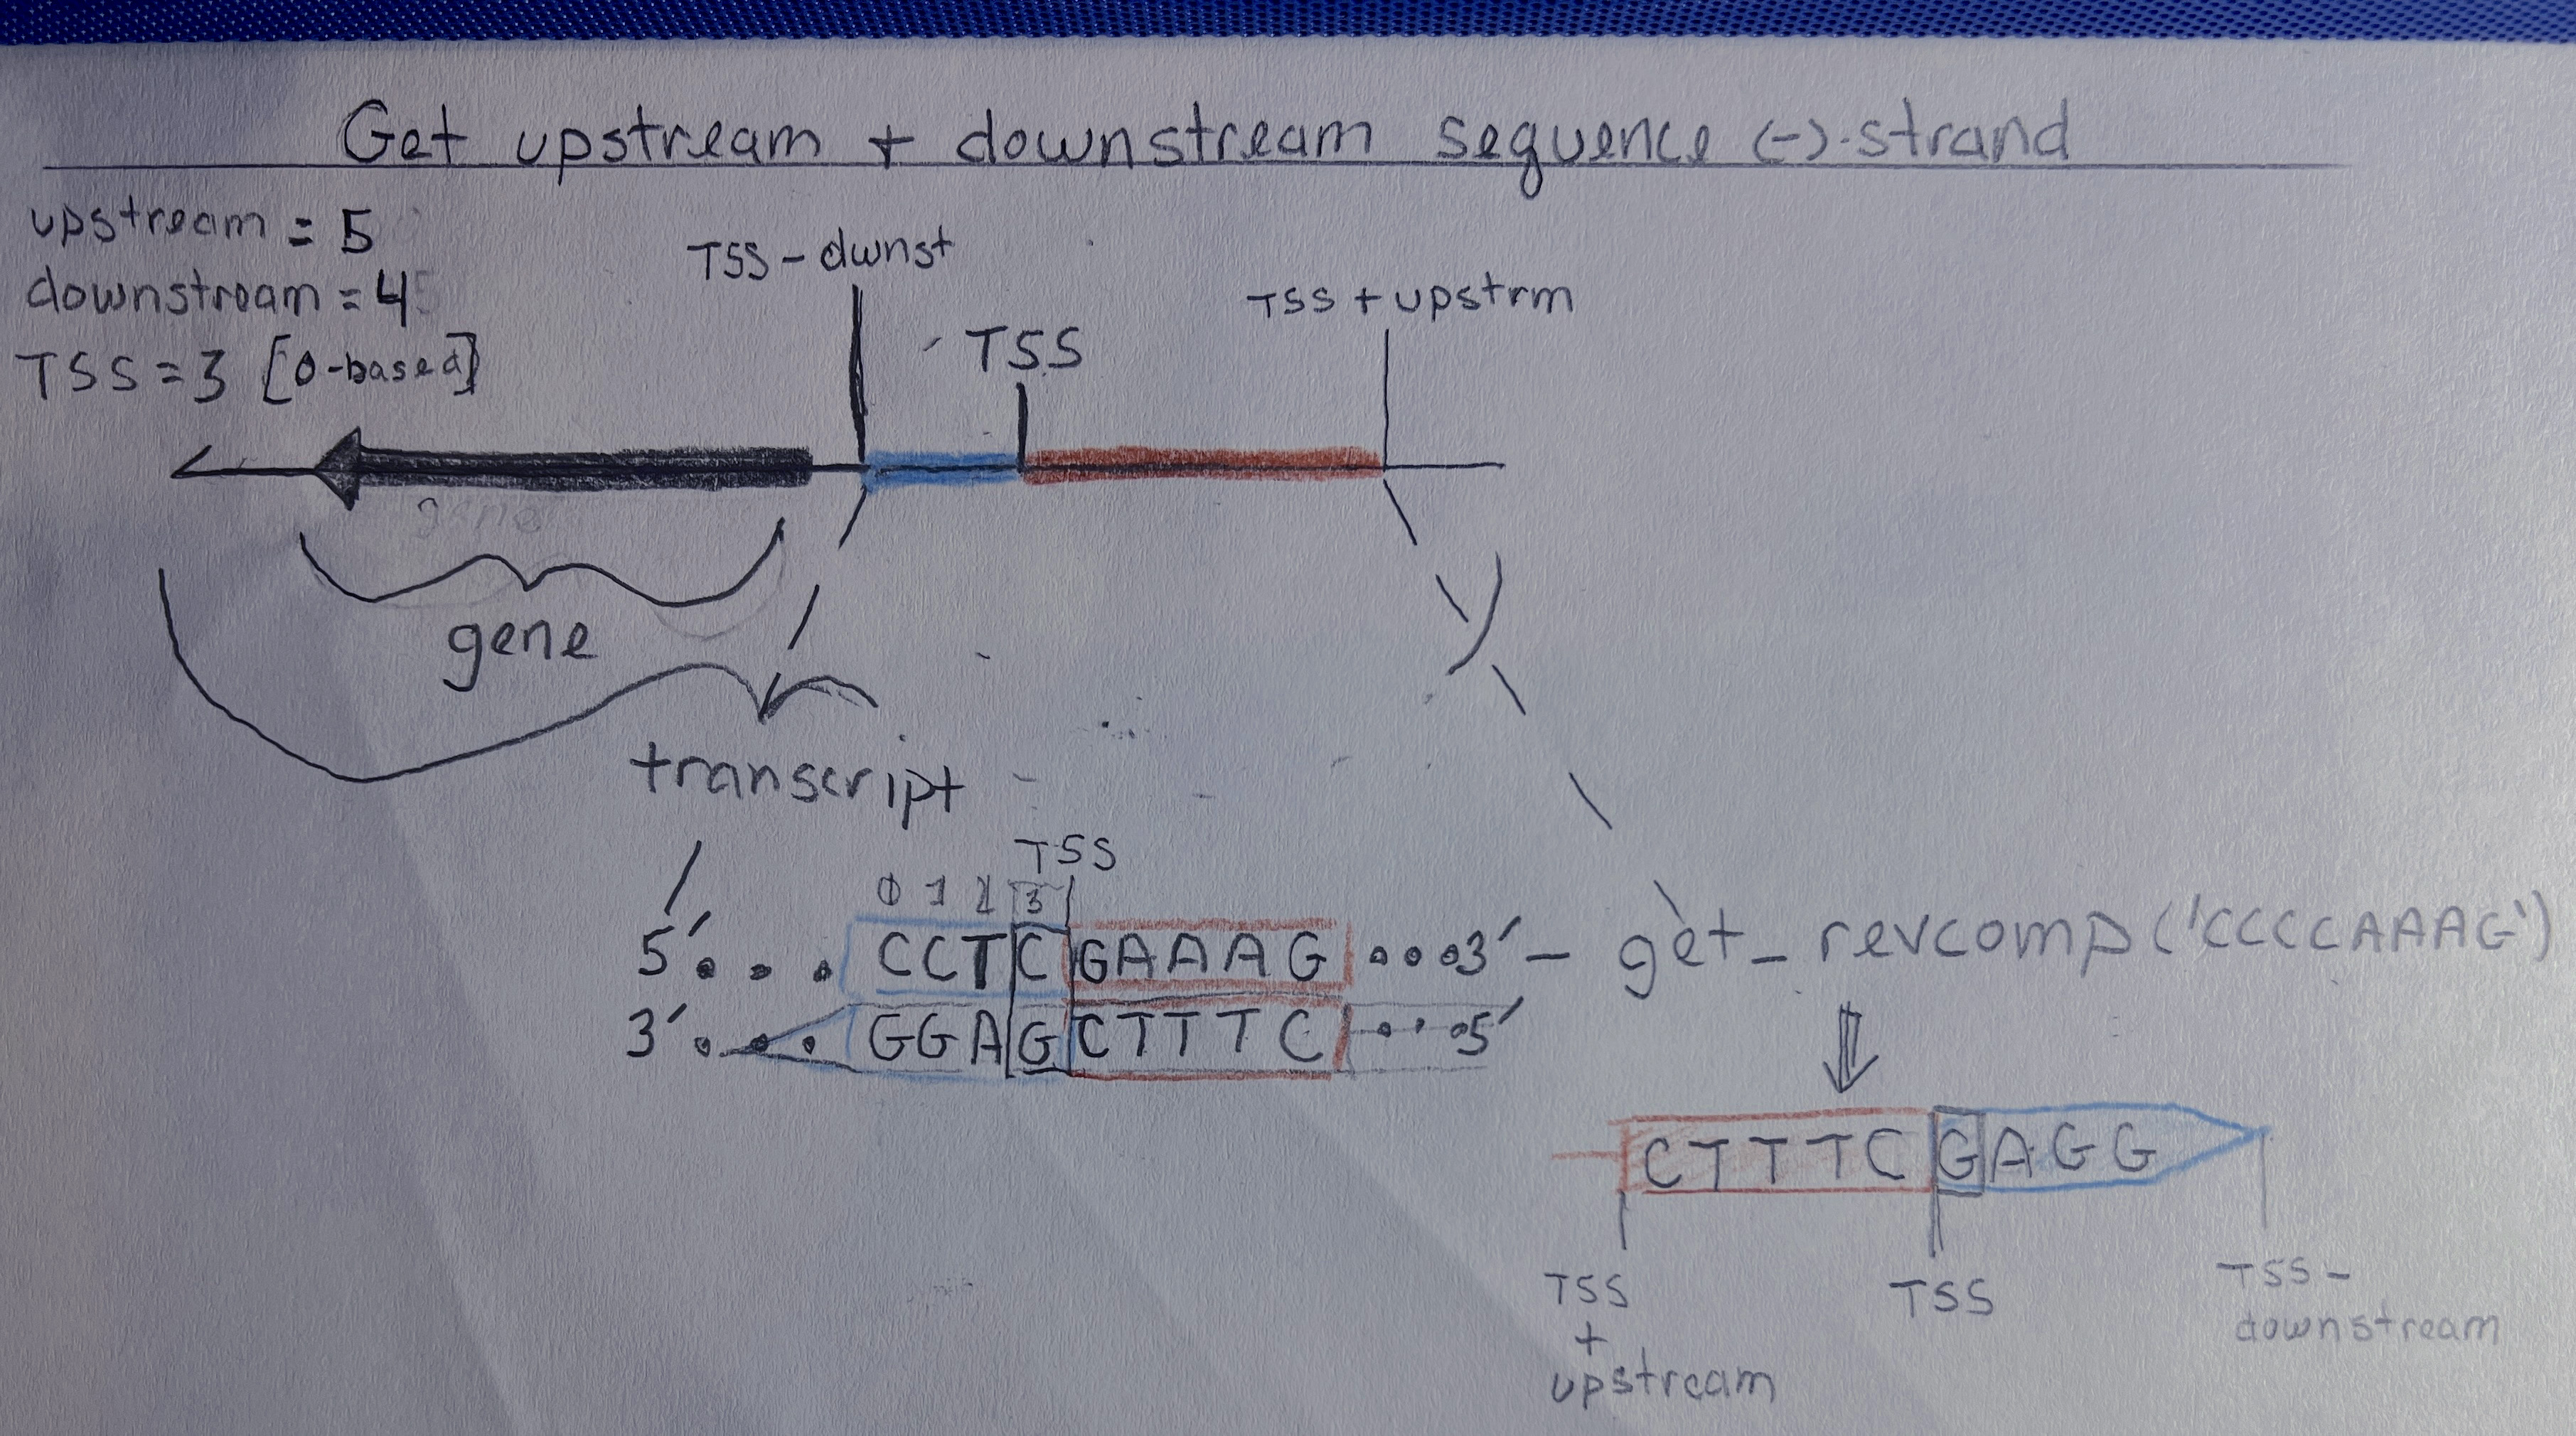 Get upstream + downstream sequence (-)-strand
upstream = 5
downstream = 4
TSS = 3 [0-based]
TSS - dwnst
TSS
TSS + upstrm
gene
gene
transcript
TSS
0 1 2 3
5' . . . CCTCGAAAG . . . 3' - get_revcomp('CCCCAAAG')
3' . . . GGAGCTTTC . . . 5'
CTTTCGAGG
TSS
+
upstream
TSS
TSS -
downstream